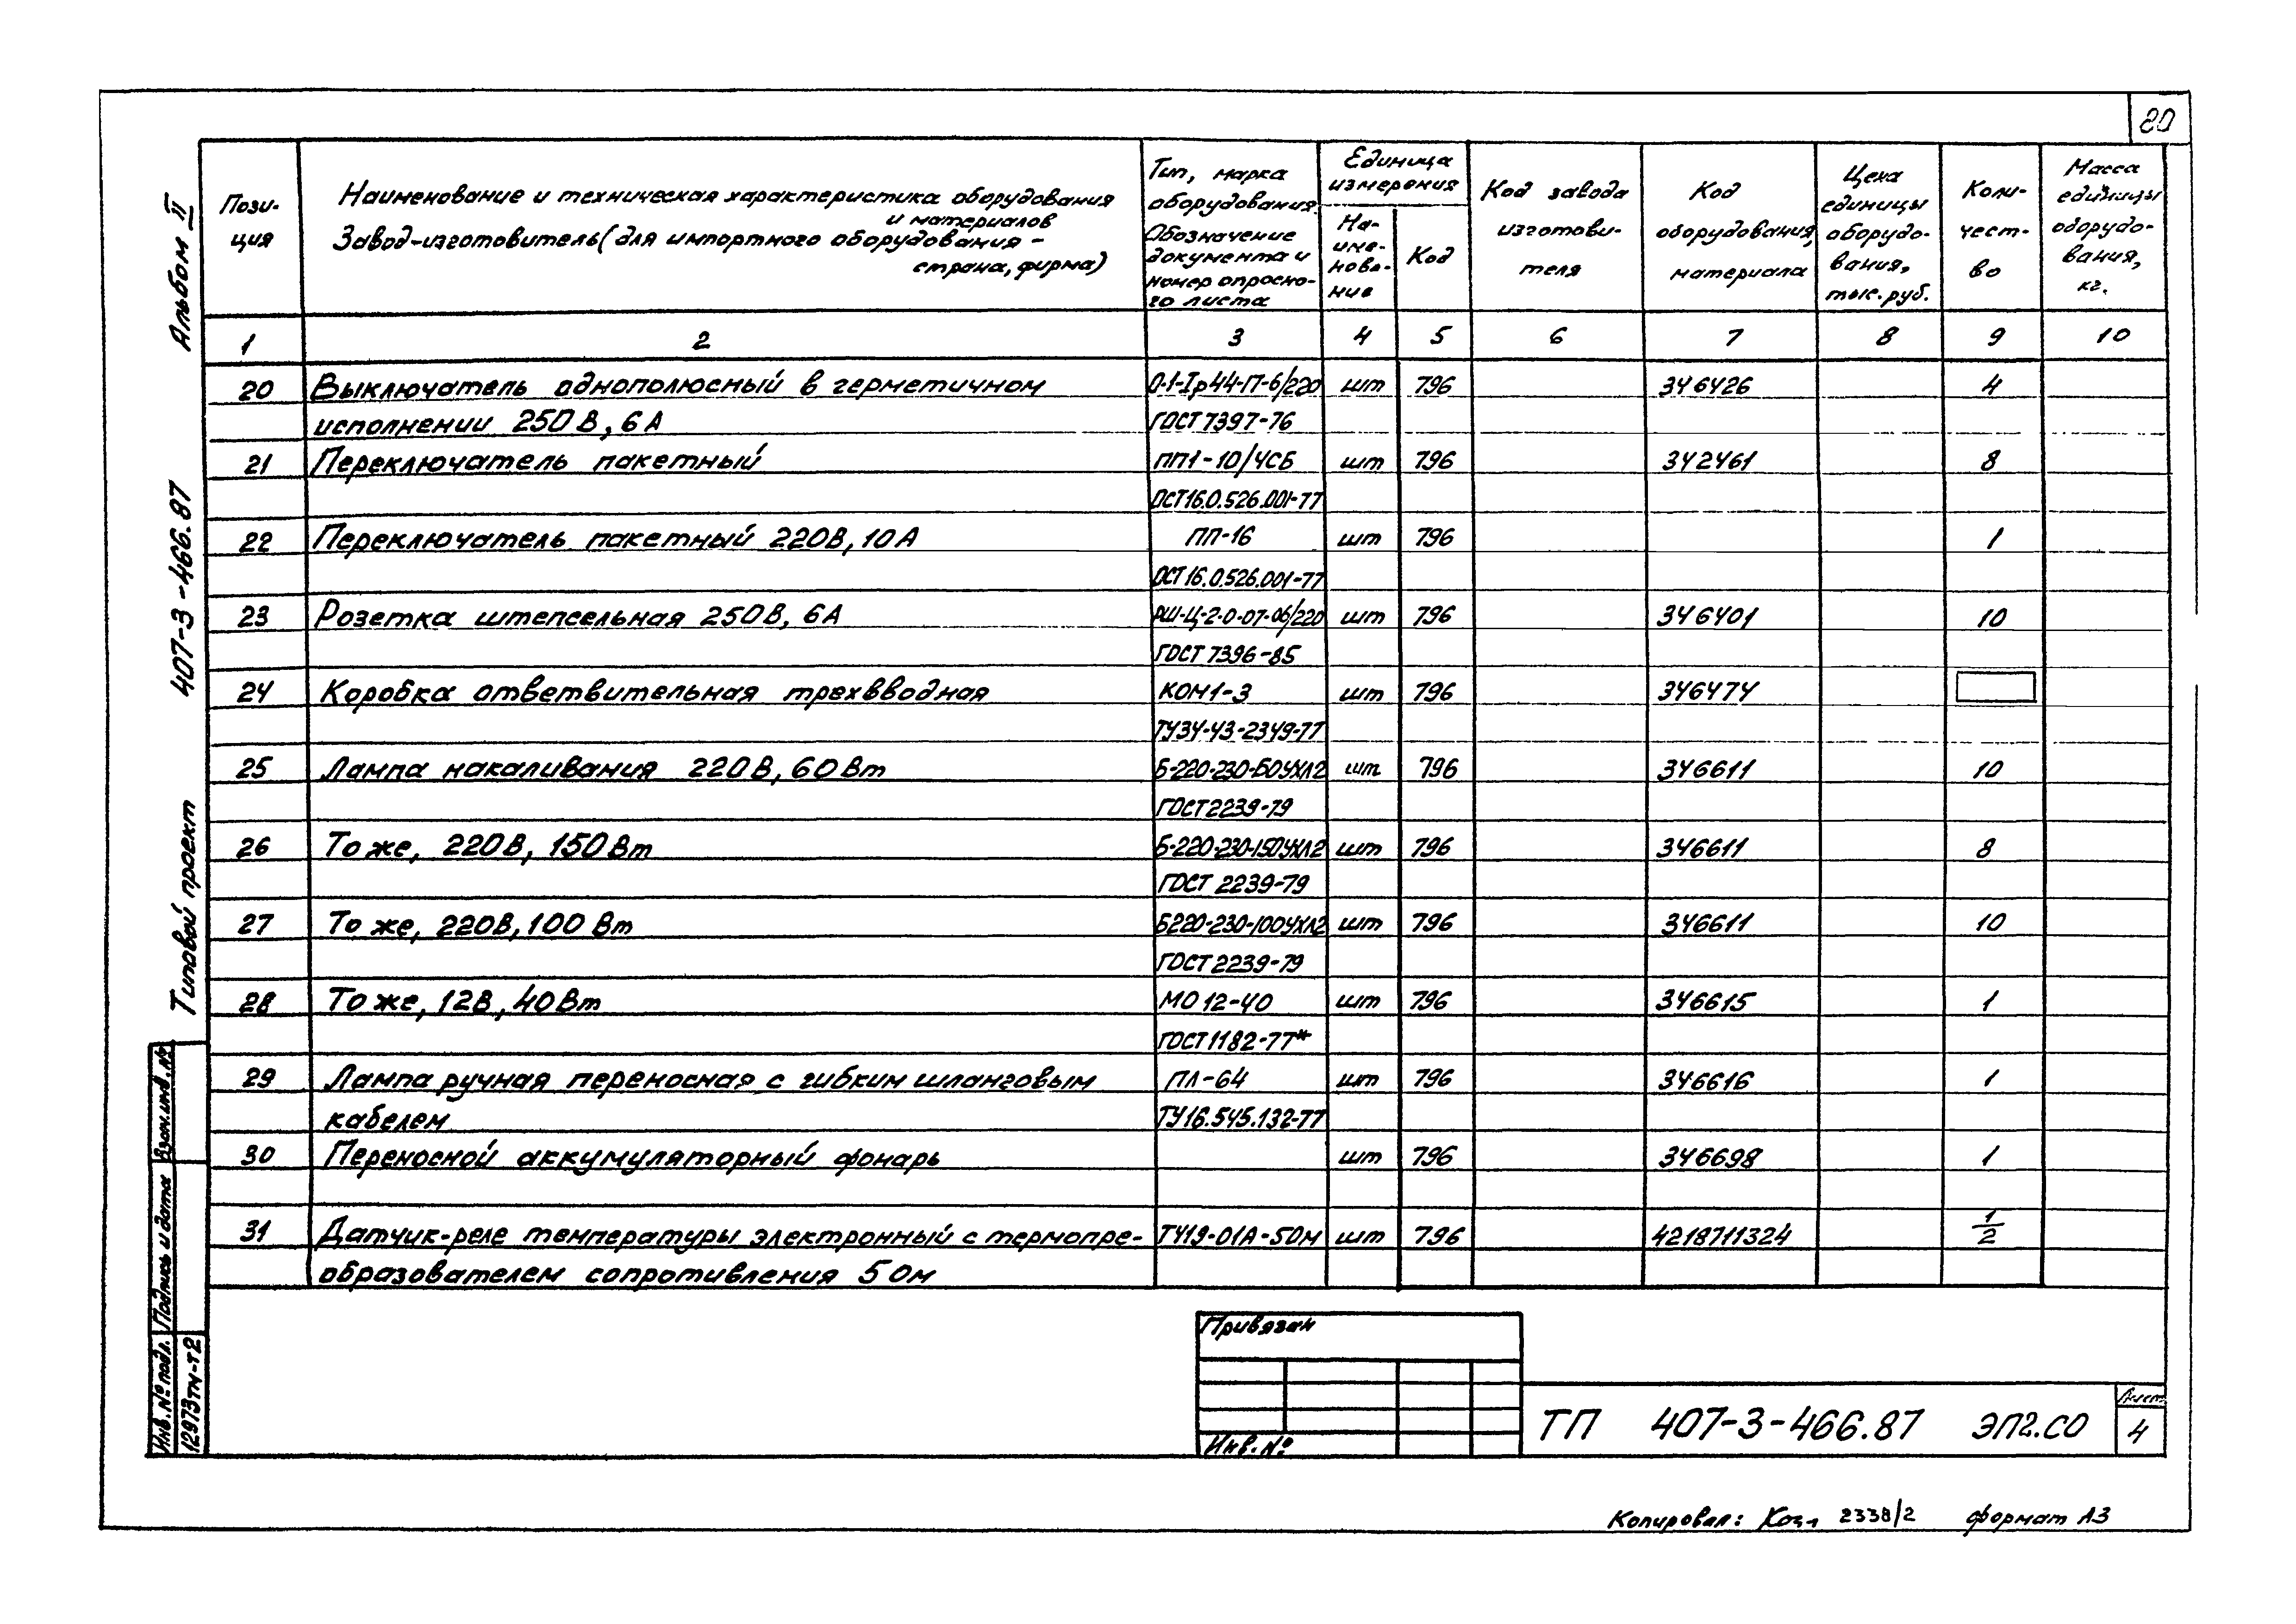 20
Пози-
ция
Наименование и техническая характеристика оборудования
и материалов
Завод-изготовитель (для импортного оборудования -
страна, фирма)
Тип, марка
оборудования.
Обозначение
документа и
номер опросно-
го листа
Единица
измерения
На-
име-
нова-
ние
Код
Код завода
изготови-
теля
Код
оборудования,
материала
Цена
единицы
оборудо-
вания,
тыс. руб.
Коли-
чест-
во
Масса
единицы
оборудо-
вания,
кг.
1 2 3 4 5 6 7 8 9 10
20 Выключатель однополюсный в герметичном О-1-Iр44-П-6/220 шт 796 346426 4
исполнении 250В, 6А ГОСТ 7397-76
21 Переключатель пакетный ПП1-10/ЧСБ шт 796 342461 8
ОСТ16.0.526.001-77
22 Переключатель пакетный 220В, 10А ПП-16 шт 796 1
ОСТ16.0.526.001-77
23 Розетка штепсельная 250В, 6А РШ-Ц-2-0-07-06/220 шт 796 346401 10
ГОСТ 7396-85
24 Коробка ответвительная трехвводная КОМ1-3 шт 796 346474
ТУ34-43-2349-77
25 Лампа накаливания 220В, 60Вт Б-220-230-60УХЛ2 шт 796 346611 10
ГОСТ2239-79
26 То же, 220В, 150Вт Б-220-230-150УХЛ2 шт 796 346611 8
ГОСТ 2239-79
27 То же, 220В, 100 Вт Б220-230-100УХЛ2 шт 796 346611 10
ГОСТ 2239-79
28 То же, 12В, 40Вт МО 12-40 шт 796 346615 1
ГОСТ1182-77*
29 Лампа ручная переносная с гибким шланговым ПЛ-64 шт 796 346616 1
кабелем ТУ16.545.132-77
30 Переносной аккумуляторный фонарь шт 796 346698 1
31 Датчик-реле температуры электронный с термопре- ТУ19-01А-50м шт 796 4218711324 1/2
образователем сопротивления 5 Ом
Альбом II
407-3-466.87
Типовой проект
Взам. инв. №
Подпись и дата
Инв. № подл.
12973тм-т2
Привязан
Инв. №
ТП 407-3-466.87 ЭП2.СО
Лист
4
Копировал: 2338/2 формат А3